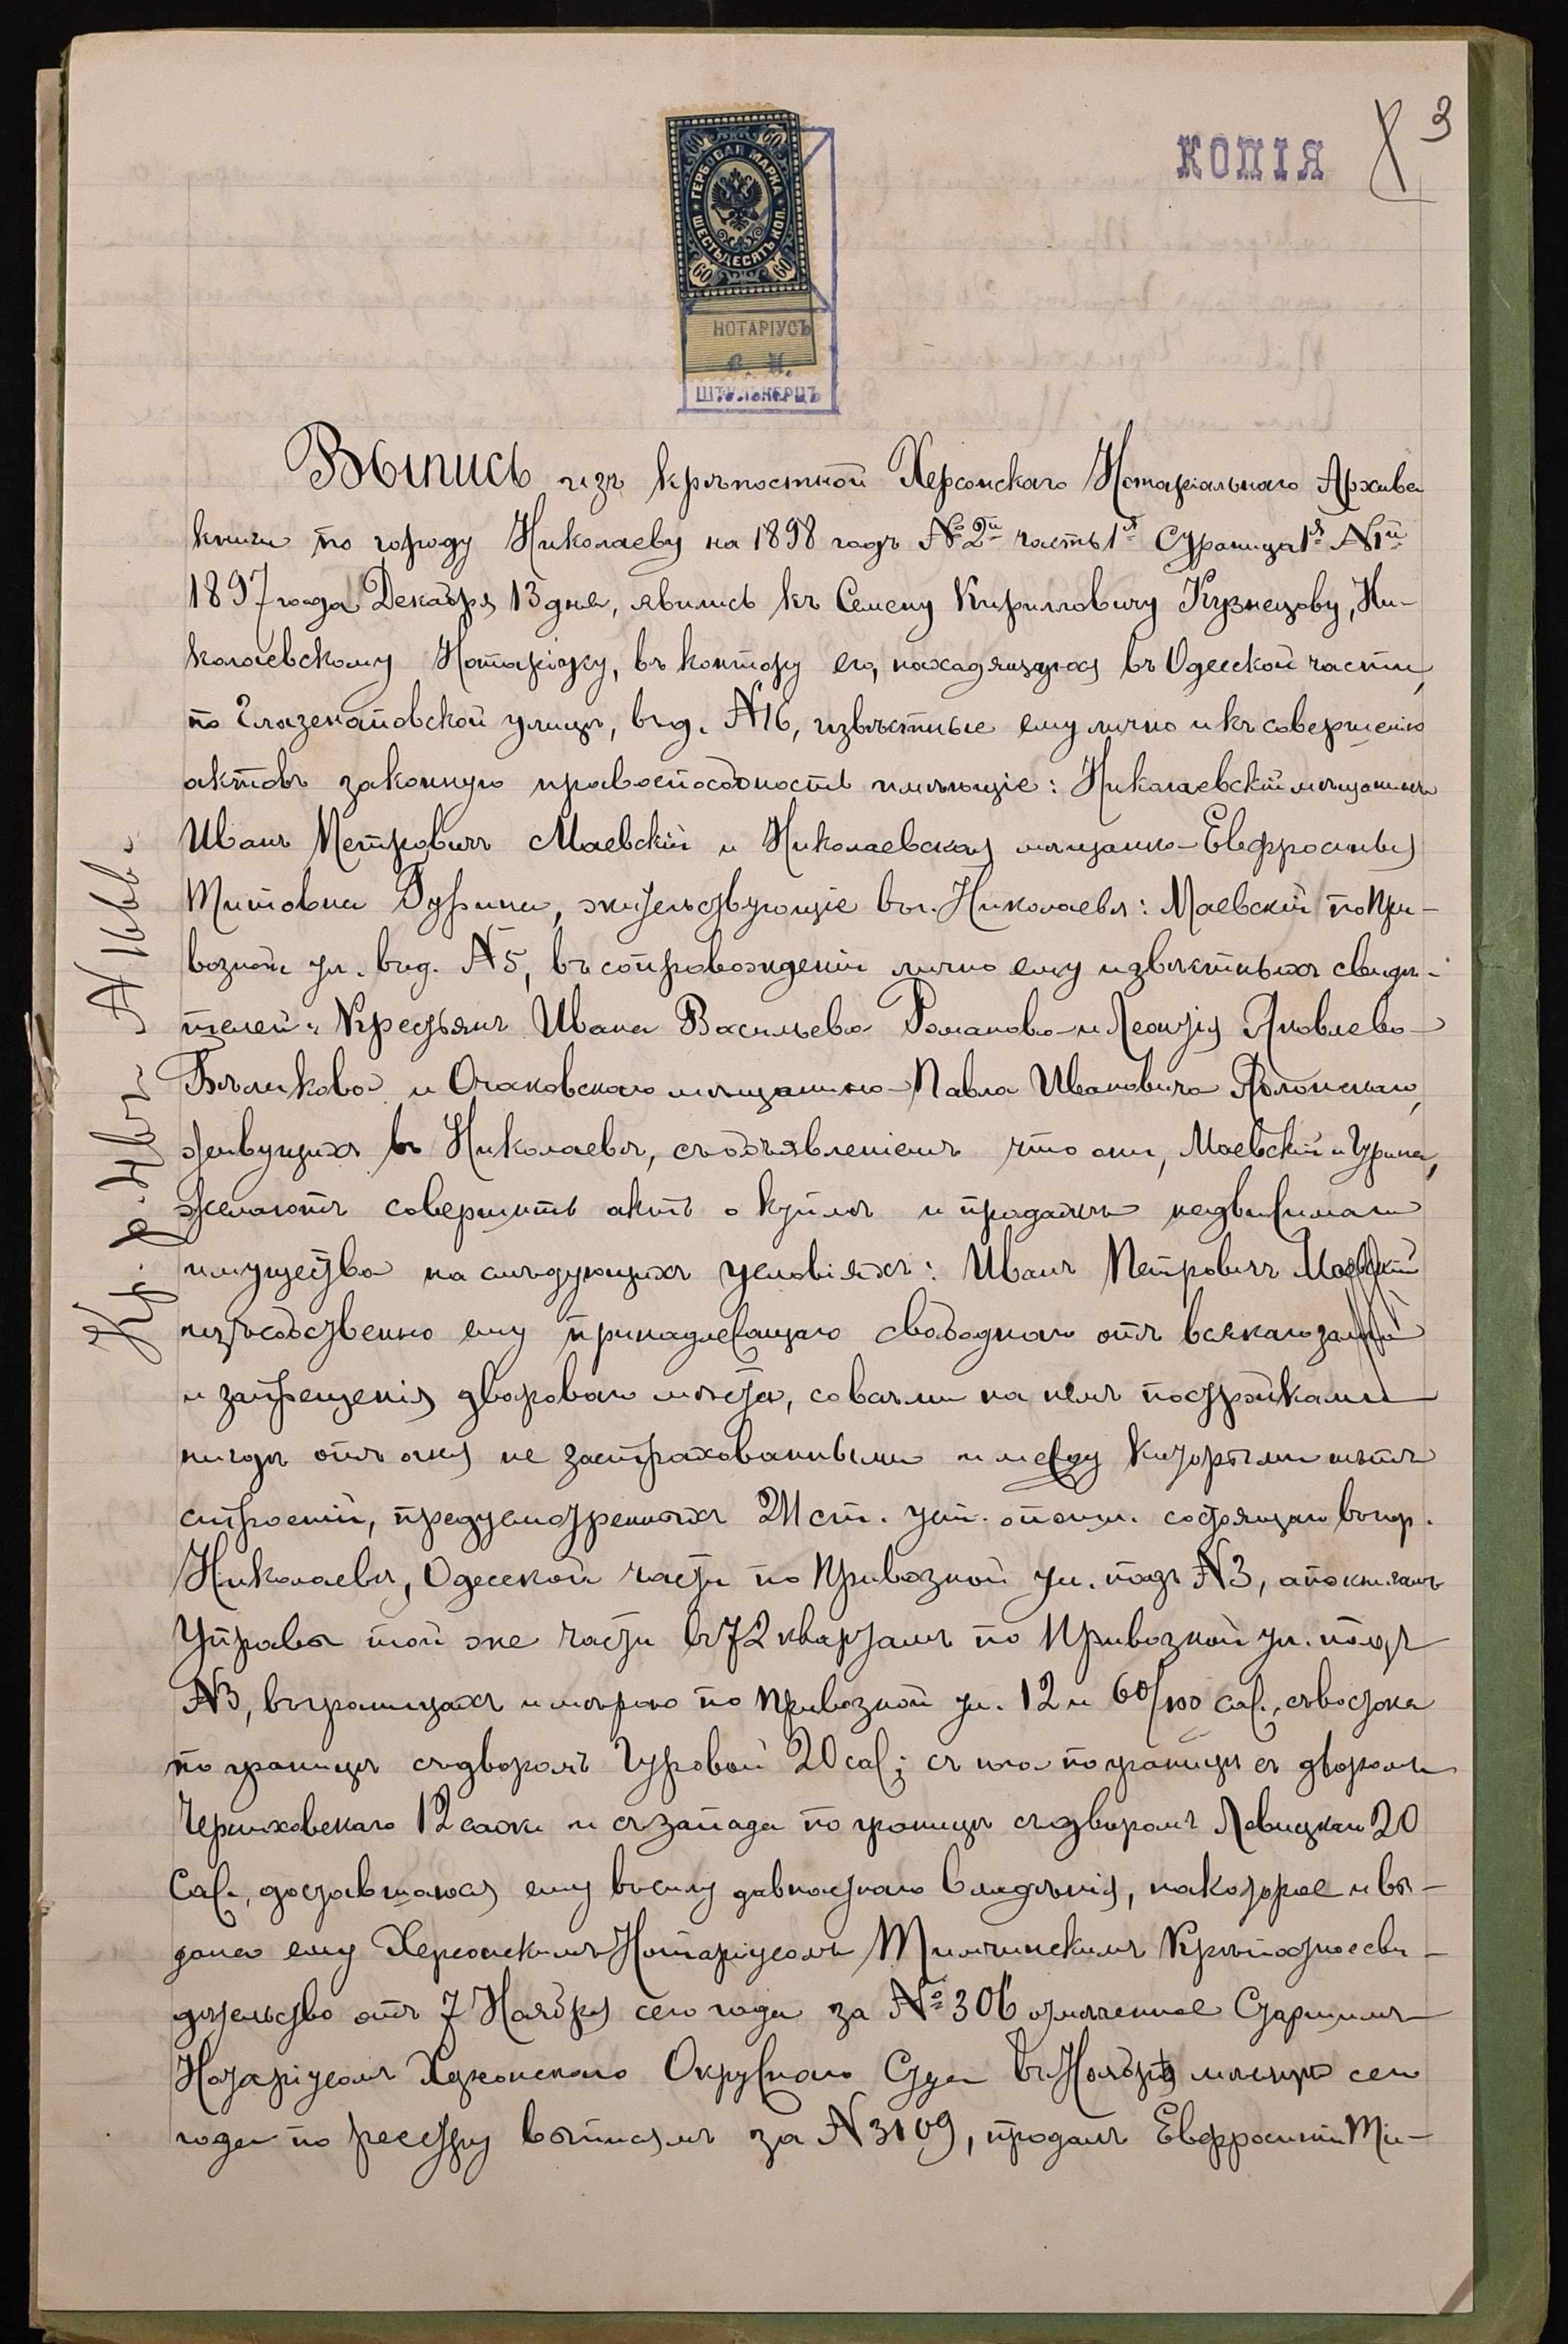 КОПІЯ
3
60 60
ГЕРБОВАЯ МАРКА
ШЕСТЬДЕСЯТЪ КОП.
60 60
НОТАРІУСЪ
Выпись изъ крѣпостной Херсонскаго Нотаріальнаго Архива
книги по городу Николаеву на 1898 годъ №2й часть 1я Страница 1я №1й
1897 года Декабря 13 дня, явились къ Семену Кирилловичу Кузнецову, Ни-
колаевскому Нотаріусу, въ контору его, находящуюся въ Одесской части,
по Глазенаповской улицѣ, въ д. №16, извѣстные ему лично и къ совершенію
актовъ законную правоспособность имѣющіе: Николаевскій мѣщанинъ
Иванъ Петровичъ Маевскій и Николаевская мѣщанка Евфросинья
Титовна Гурина, жительствующіе въ г. Николаевѣ: Маевскій по При-
возной ул. въ д. №5, въ сопровожденіи лично ему извѣстныхъ свидѣ-
телей: Крестьянъ Ивана Васильева Романова и Леонтія Яковлева
Бѣликова и Очаковскаго мѣщанина Павла Ивановича Яблонскаго,
живущихъ въ Николаевѣ, съ объявленіемъ что они, Маевскій и Гурина,
желаютъ совершить актъ о куплѣ и продажѣ недвижимаго
имущества на слѣдующихъ условіяхъ: Иванъ Петровичъ Маевскій
изъ собственно ему принадлежащаго свободнаго отъ всякаго залога
и запрещенія двороваго мѣста, со всѣми на немъ постройками
нигдѣ отъ огня не застрахованными и между которыми нѣтъ
строеній, предусмотренныхъ 211 ст. уст. о пошл. состоящаго въ гор.
Николаевѣ, Одесской части по Привозной ул. подъ №3, а по книгамъ
Управы той же части въ 72 кварталѣ по Привозной ул. подъ
№3, въ границахъ и мѣрою по Привозной ул. 12 и 60/100 саж., съ востока
по границѣ съ дворомъ Гуровой 20 саж; съ юга по границѣ съ дворомъ
Черниховскаго 12 саж и съ запада по границѣ съ дворомъ Левицкаго 20
саж., доставшагося ему въ силу давностнаго владѣнія, на которое и вы-
дано ему Херсонскимъ Нотаріусомъ Крѣпостное сви-
дѣтельство отъ 7 Ноября сего года за №306 отмѣченное Старшимъ
Нотаріусомъ Херсонскаго Окружнаго Суда въ Ноябрѣ мѣсяцѣ сего
года по реестру выписямъ за №3109, продалъ Евфросиніи Ти-